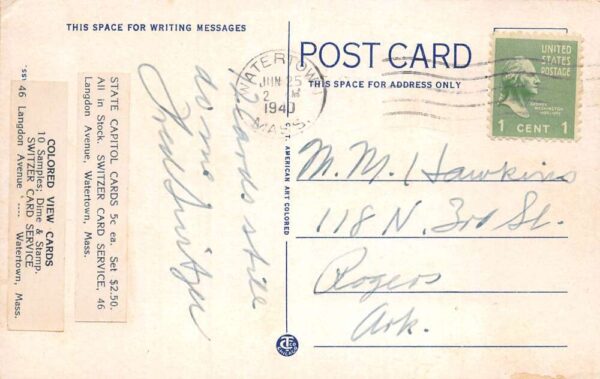 THIS SPACE FOR WRITING MESSAGES
POST CARD
THIS SPACE FOR ADDRESS ONLY
UNITED
STATES
POSTAGE
GEORGE
WASHINGTON
1 CENT 1
WATERTOWN
JUN 25
2 M
1940
MASS.
M. M. Hawkins
118 N. 3rd St.
Rogers
Ark.
cards still
do me
Fred Switzer
STATE CAPITOL CARDS 5c ea. Set $2.50.
All in Stock. SWITZER CARD SERVICE, 46
Langdon Avenue, Watertown, Mass.
COLORED VIEW CARDS
10 Samples; Dime & Stamp.
SWITZER CARD SERVICE
46 Langdon Avenue ---- Watertown, Mass.
C. T. AMERICAN ART COLORED